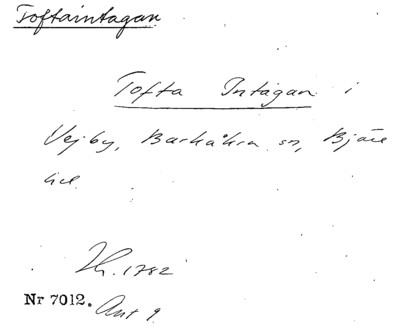 Toftaintagan
Tofta Intagan i
Vejby, Barkåkra sn, Bjäre
hd.
Lh. 1782
Nr 7012. Akt 9.